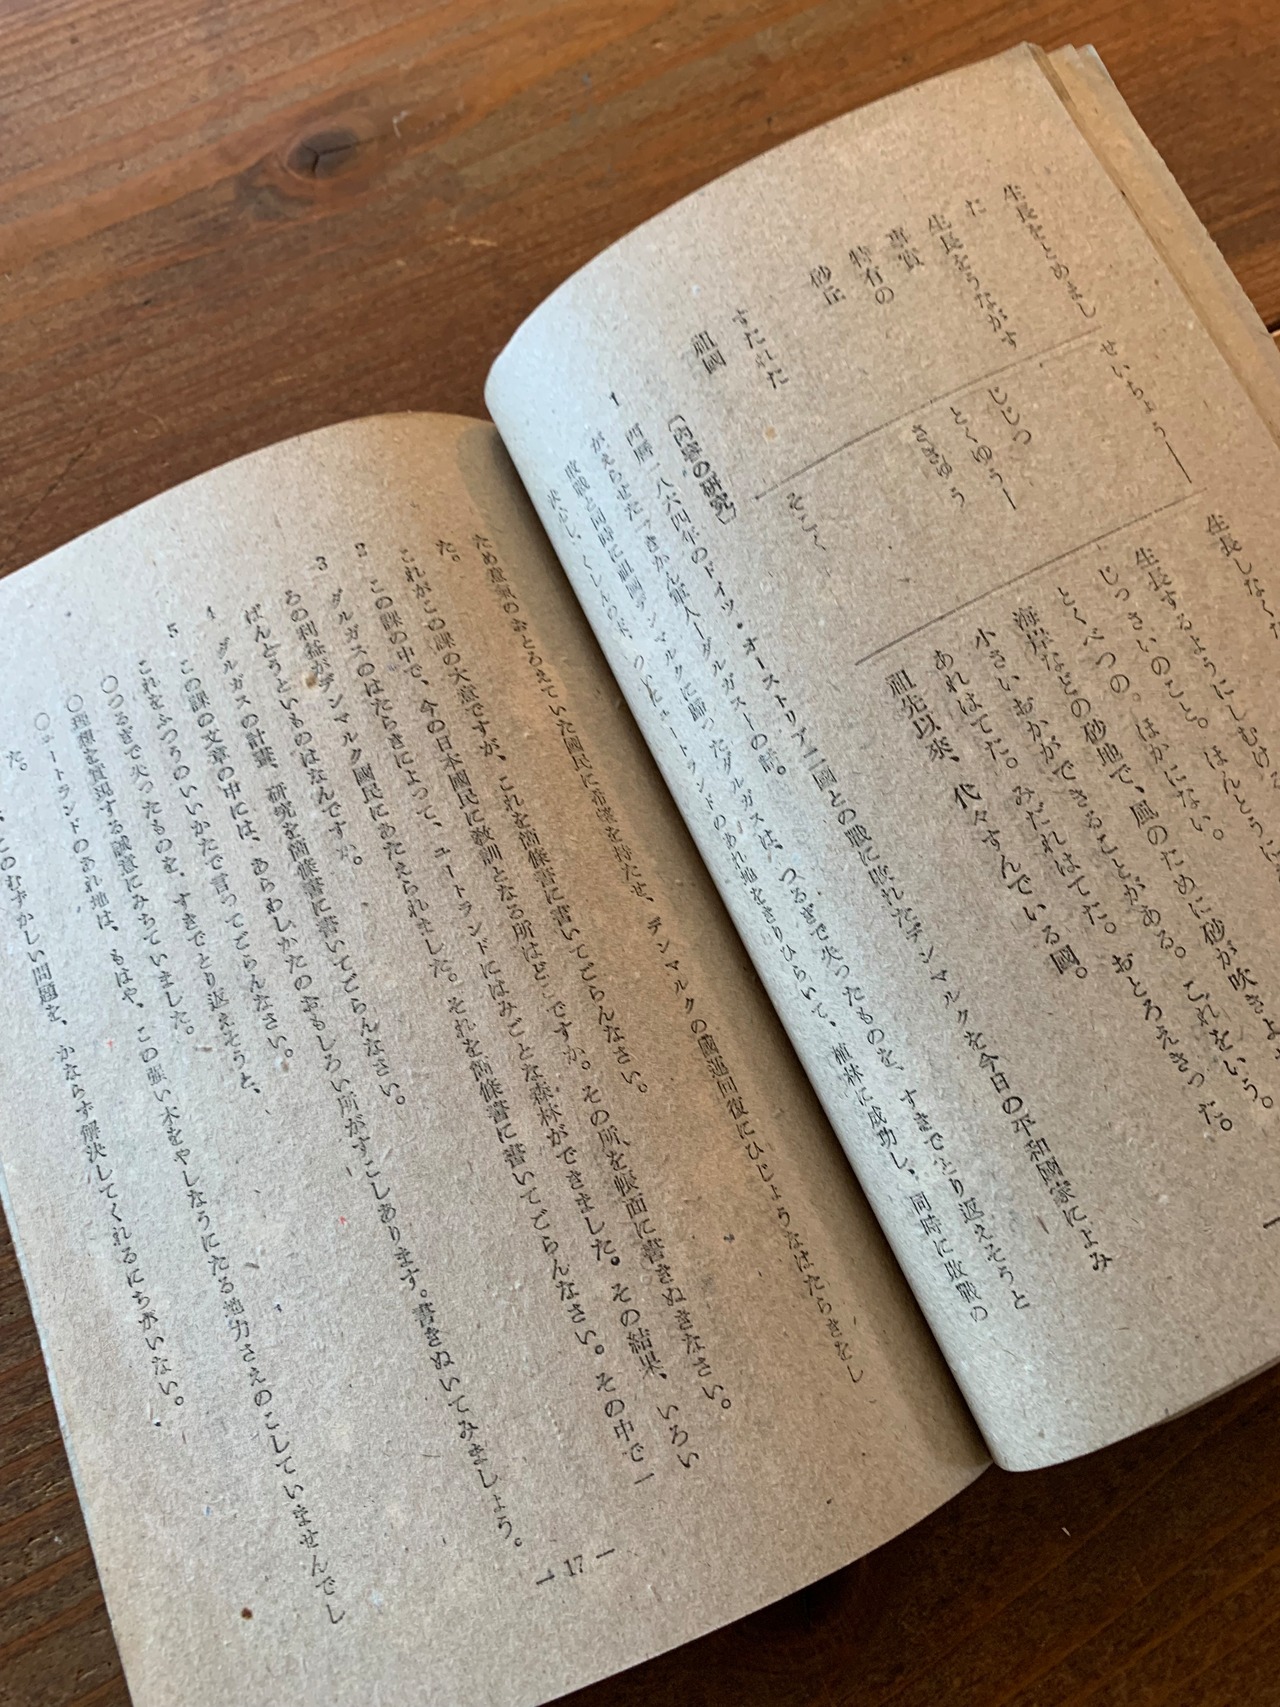 生長をとめました せいちょうー 生長しなく
生長をうながす 生長するようにしむける
事實 じじつ じっさいのこと。ほんとうに
特有の とくゆうー とくべつの。ほかにない。
砂丘 さきゅう 海岸などの砂地で、風のために砂が吹き
小さいおかができることがある。これをいう。
すたれた あれはてた。みだれはてた。おとろえきった。
祖國 そこく 祖先以來、代々すんでいる國。
〔内容の研究〕
1 西暦一八六四年のドイツ・オーストリア二國との戰に敗れたデンマークを今日の平和國家によみ
がえらせた、きかん軍人ーダルガスーの話。
敗戰と同時に祖國デンマルクに歸ったダルガスは、つるぎで失ったものを、すきでとり返えそうと
決心し、くしんの末、ついにユートランドのあれ地をきりひらいて、植林に成功し、同時に敗戰の
ため意氣のおとろえていた國民に希望を持たせ、デンマルクの國運回復にひじょうなはたらきをし
た。
これがこの課の大意ですが、これを箇條書に書いてごらんなさい。
2 この課の中で、今の日本國民に敎訓となる所はどこですか。その所を帳面に書きぬきなさい。
3 ダルガスのはたらきによって、ユートランドにはみごとな森林ができました。その結果、いろい
ろの利益がデンマルク國民にあたえられました。それを箇條書に書いてごらんなさい。その中で一
ばんとうといものはなんですか。
4 ダルガスの計畫、研究を箇條書に書いてごらんなさい。
5 この課の文章の中には、あらわしかたのおもしろい所がすこしあります。書きぬいてみましょう。
これをふつうのいいかたで言ってごらんなさい。
〇つるぎで失ったものを、すきでとり返えそうと、
〇理想を實現する誠意にみちていました。
〇ユートランドのあれ地は、もはや、この強い木をやしなうにたる地力さえのこしていませんでし
た。
このむずかしい問題を、かならず解決してくれるにちがいない。
― 17 ―